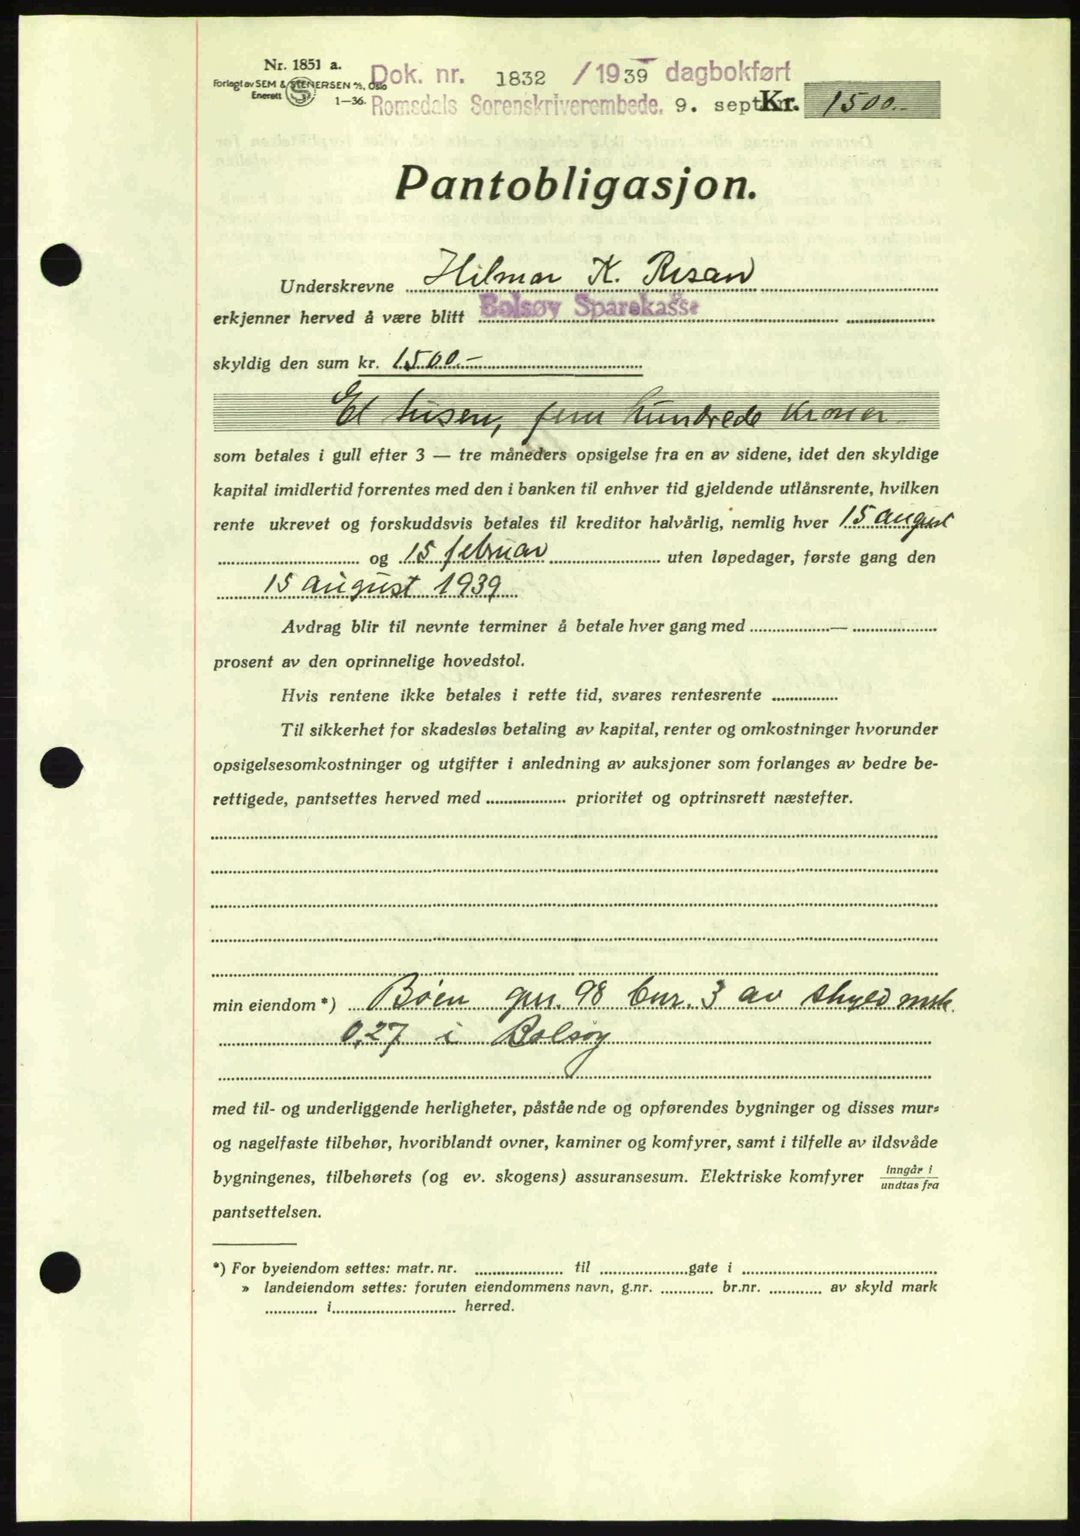 Nr. 1851 a.
Forlagt av SEM & STENERSEN A/S, Oslo
Enerett
1—36.
Dok. nr. 1832 / 1939 dagbokført
Romsdals Sorenskriverembede. 9. sept.
Kr. 1500.-
Pantobligasjon.
Underskrevne Hilmar K. Risan
erkjenner herved å være blitt Bolsøy Sparekasse
skyldig den sum kr. 1500.-
Et tusen, fem hundrede kroner
som betales i gull efter 3 — tre måneders opsigelse fra en av sidene, idet den skyldige
kapital imidlertid forrentes med den i banken til enhver tid gjeldende utlånsrente, hvilken
rente ukrevet og forskuddsvis betales til kreditor halvårlig, nemlig hver 15 august
og 15 februar uten løpedager, første gang den
15 august 1939
Avdrag blir til nevnte terminer å betale hver gang med —
prosent av den oprinnelige hovedstol.
Hvis rentene ikke betales i rette tid, svares rentesrente
Til sikkerhet for skadesløs betaling av kapital, renter og omkostninger hvorunder
opsigelsesomkostninger og utgifter i anledning av auksjoner som forlanges av bedre be-
rettigede, pantsettes herved med prioritet og optrinsrett næstefter.
min eiendom *) Bøen gnr. 98 bnr. 3 av skyld mrk.
0,27 i Bolsøy
med til- og underliggende herligheter, påstående og opførendes bygninger og disses mur-
og nagelfaste tilbehør, hvoriblandt ovner, kaminer og komfyrer, samt i tilfelle av ildsvåde
bygningenes, tilbehørets (og ev. skogens) assuransesum. Elektriske komfyrer inngår i / undtas fra
pantsettelsen.
*) For byeiendom settes: matr. nr. til gate i
» landeiendom settes: foruten eiendommens navn, g.nr. br.nr. av skyld mark
i herred.